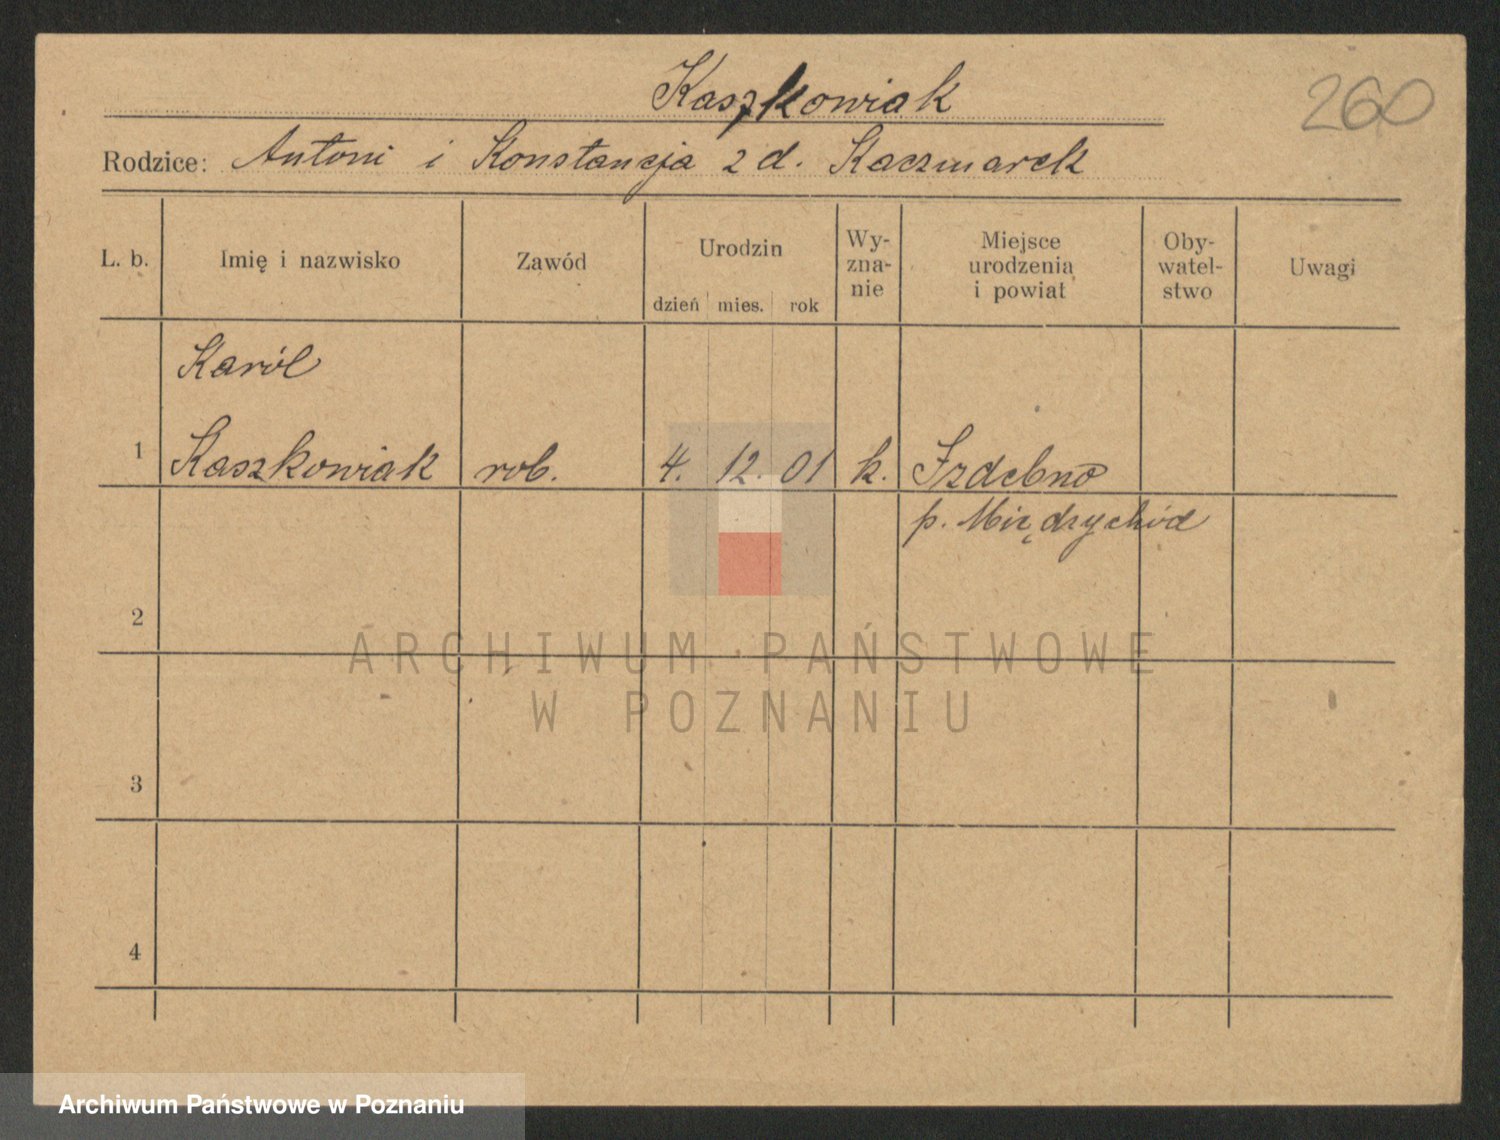 Kaszkowiak
260
Rodzice: Antoni i Konstancja z d. Kaczmarek
L. b. Imię i nazwisko Zawód Urodzin dzień mies. rok Wy-zna-nie Miejsce urodzenia i powiat Oby-watel-stwo Uwagi
Karól
1 Kaszkowiak rob. 4. 12. 01 k. Izdebno
p. Międzychód
2
ARCHIWUM PAŃSTWOWE
W POZNANIU
3
4
Archiwum Państwowe w Poznaniu